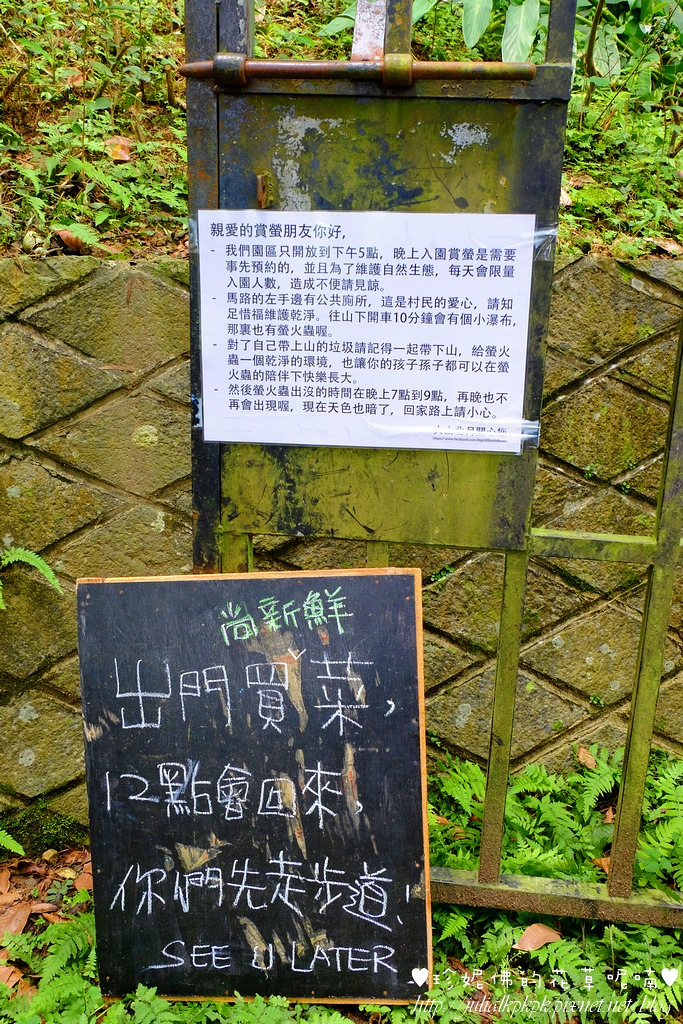 親愛的賞螢朋友你好,
- 我們園區只開放到下午5點，晚上入園賞螢是需要
事先預約的，並且為了維護自然生態，每天會限量
入園人數，造成不便請見諒。
- 馬路的左手邊有公共廁所，這是村民的愛心，請知
足惜福維護乾淨。往山下開車10分鐘會有個小瀑布，
那裏也有螢火蟲喔。
- 對了自己帶上山的垃圾請記得一起帶下山，給螢火
蟲一個乾淨的環境，也讓你的孩子孫子都可以在螢
火蟲的陪伴下快樂長大。
- 然後螢火蟲出沒的時間在晚上7點到9點，再晚也不
再會出現喔，現在天色也暗了，回家路上請小心。
尚新鮮
出門買菜,
12點會回來,
你們先走步道!
SEE U LATER
♥珍妮佛的花草呢喃♥